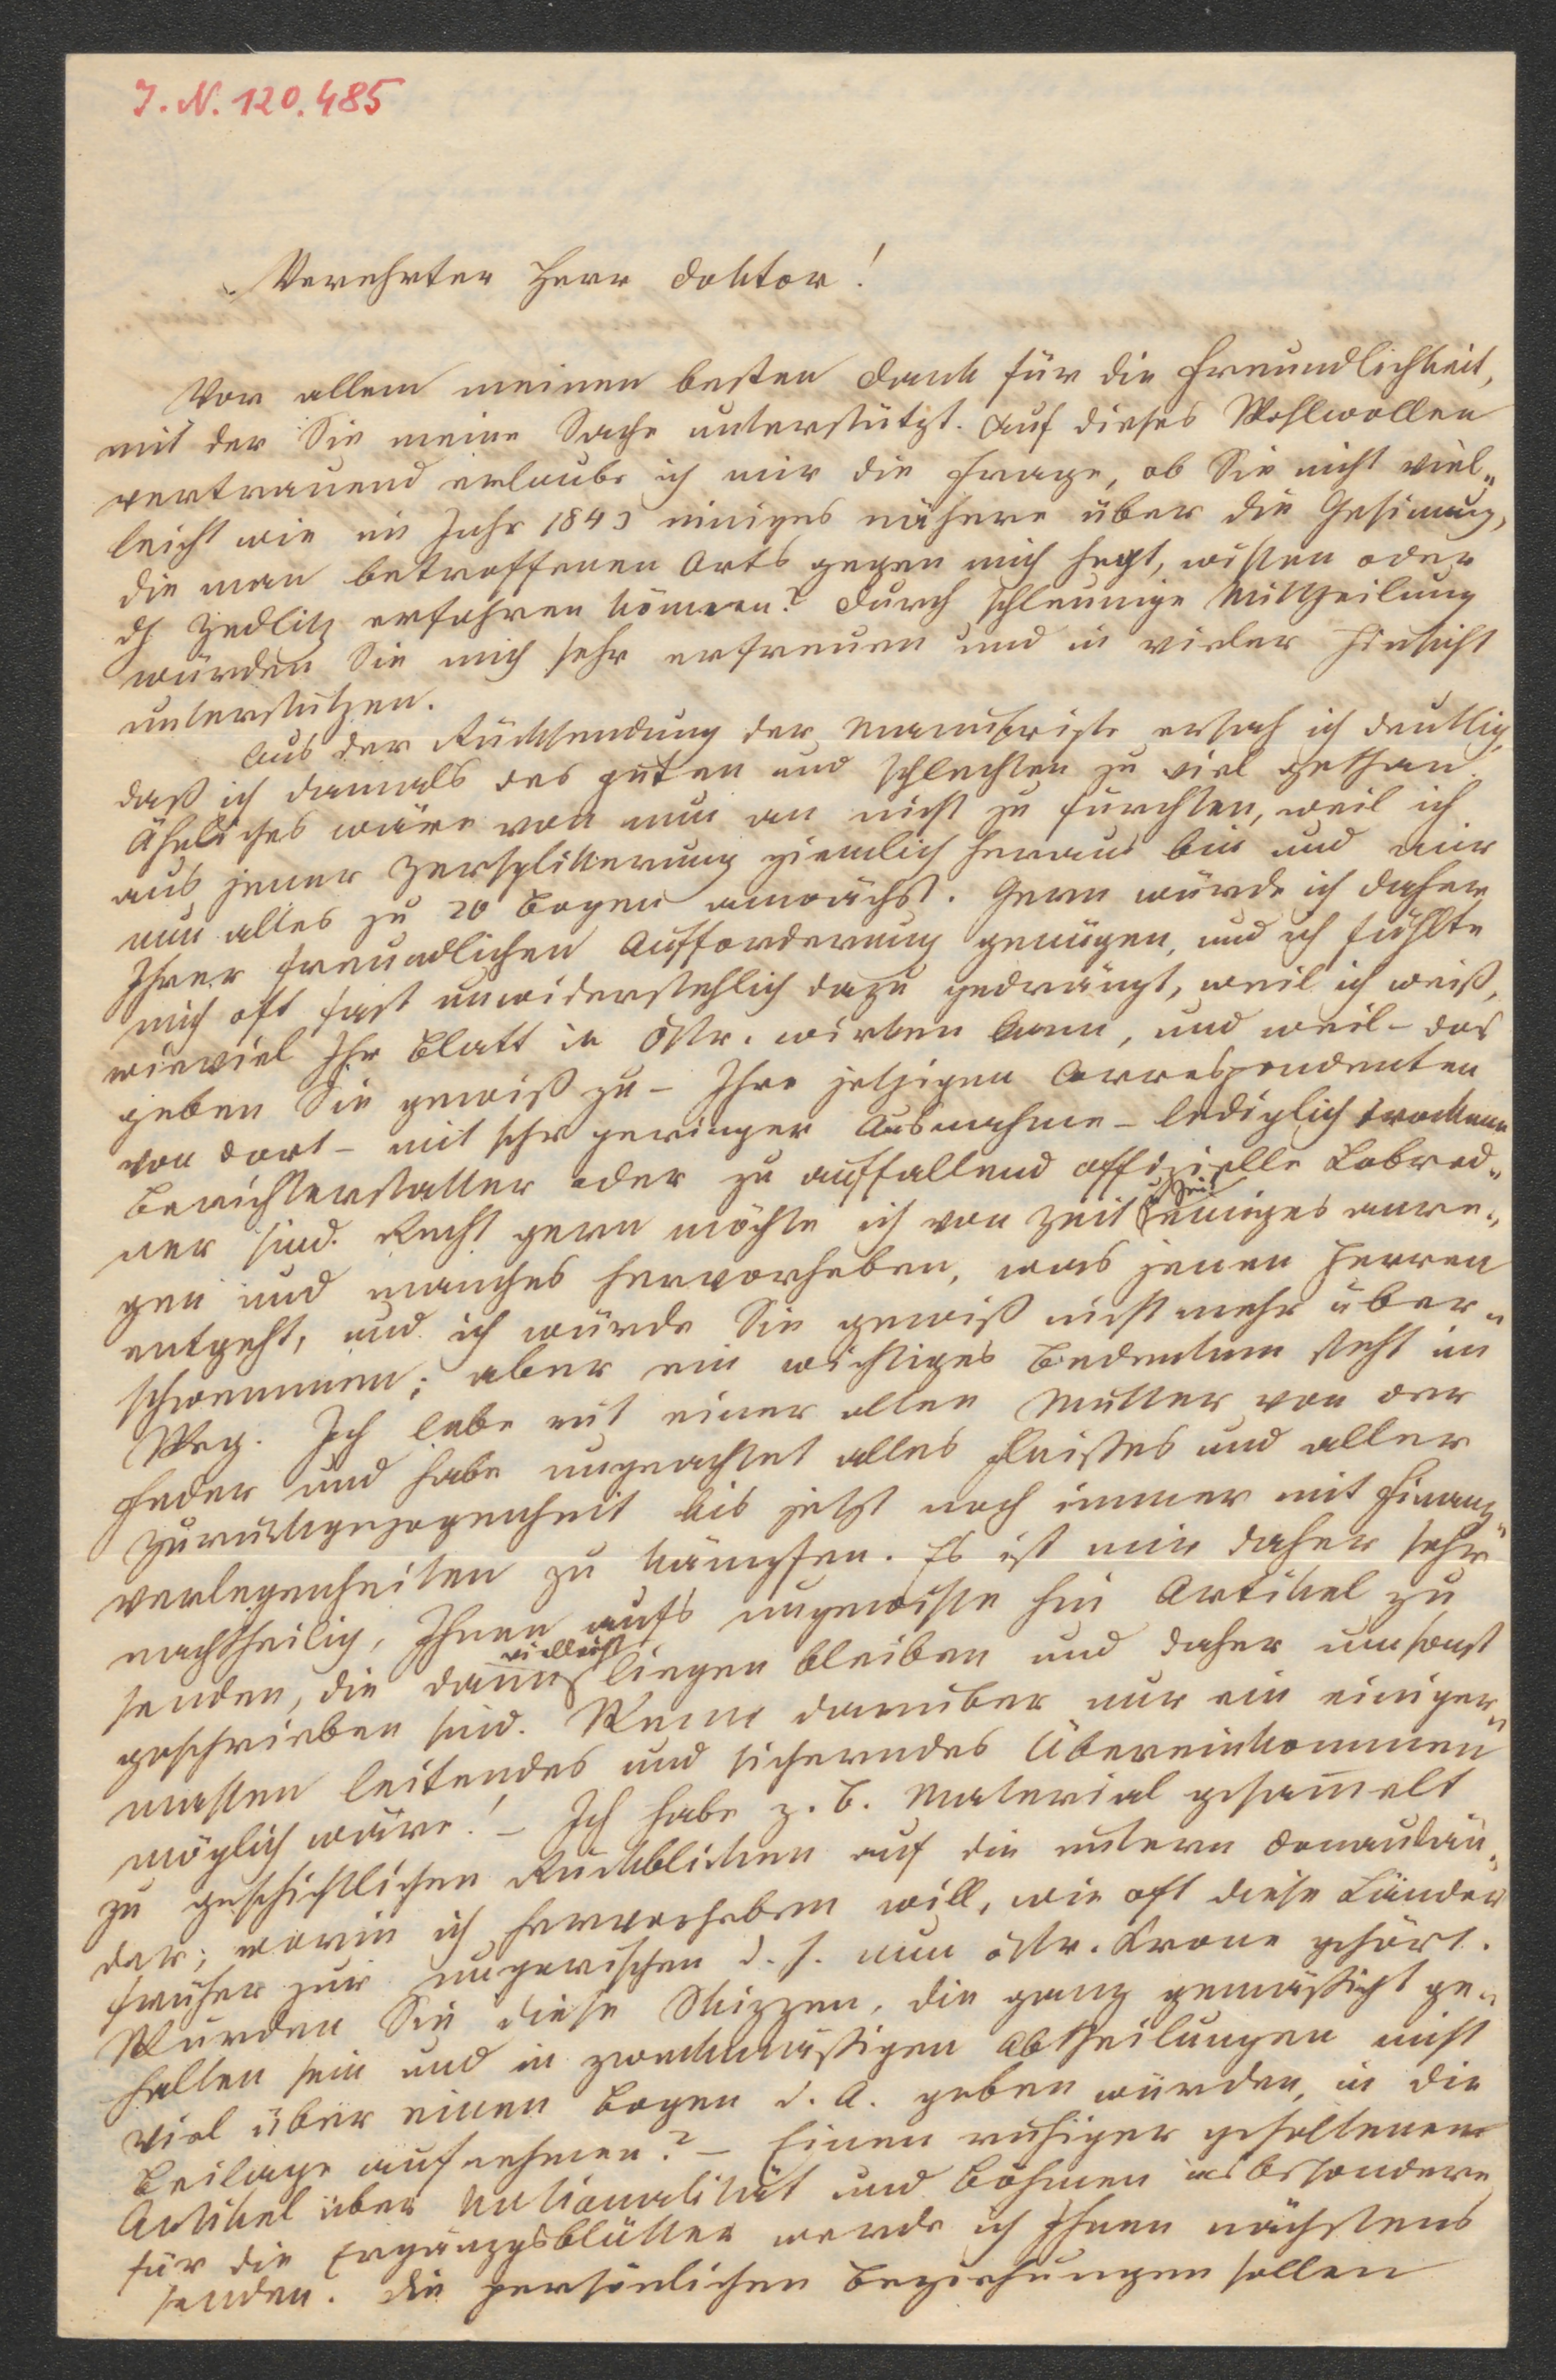 I. N. 120.485
Verehrter Herr Doktor!
Vor allem meinen besten Dank für die Freundlichkeit,
mit der Sie meine Sache unterstützt. Auf dieses Wohlwollen
vertrauend erlaube ich mir die Frage, ob Sie nicht viel-
leicht wie im Jahr 1843 einiges nähere über die Gesinnung,
die man betroffenen Orts gegen mich hegt, wissen oder
dh Zedlitz erfahren können? Durch schleunige Mittheilung
würden Sie mich sehr erfreuen und in vieler Hinsicht
unterstützen.
Aus der Rücksendung der Manuscripte ersah ich deutlich,
daß ich damals des guten und schlechten zu viel gethan.
Ähnliches wäre von nun an nicht zu fürchten, weil ich
aus jener Zersplitterung ziemlich heraus bin und mir
nun alles zu 20 Bogen anwächst. Gern würde ich daher
Ihrer freundlichen Aufforderung genügen, und ich fühlte
mich oft fast unwiderstehlich dazu gedrängt, weil ich weiß,
wieviel Ihr Blatt in Östr. wirken kann, und weil – das
geben Sie gewiß zu – Ihre jetzigen Correspondenten
von dort – mit sehr geringer Ausnahme – lediglich trockene
Berichterstatter oder zu auffallend offizielle Lobred-
ner sind. Recht gern möchte ich von Zeit zu Zeit einiges anre-
gen und manches hervorheben, was jenen Herren
entgeht, und ich würde Sie gewiß nicht mehr über-
schwemmen; aber ein wichtiges Bedenken steht im
Weg. Ich lebe mit einer alten Mutter von der
Feder und habe ungeachtet alles Fleißes und aller
Zurückgezogenheit bis jetzt noch immer mit Finanz-
verlegenheiten zu kämpfen. Es ist mir daher sehr
nachtheilig, Ihnen aufs ungewisse hin Artikel zu
senden, die dann vielleicht liegen bleiben und daher umsonst
geschrieben sind. Wenn darüber nur ein einiger-
maßen leitendes und sicherndes Übereinkommen
möglich wäre! – Ich habe z. B. Material gesammelt
zu geschichtlichen Rückblicken auf die untern Donaulän-
der; worin ich hervorheben will, wie oft diese Länder
früher zur ungarischen d. h. nun östr. Krone gehört.
Würden Sie diese Skizzen, die ganz gemäßigt ge-
halten sein und in zweckmäßigen Abtheilungen nicht
viel über einen Bogen d. A. geben würden, in die
Beilage aufnehmen? – Einen ruhiger gehaltenen
Artikel über Nationalität und Böhmen insbesondere
für die Ergänzgsblätter werde ich Ihnen nächstens
senden. Die persönlichen Beziehungen sollen